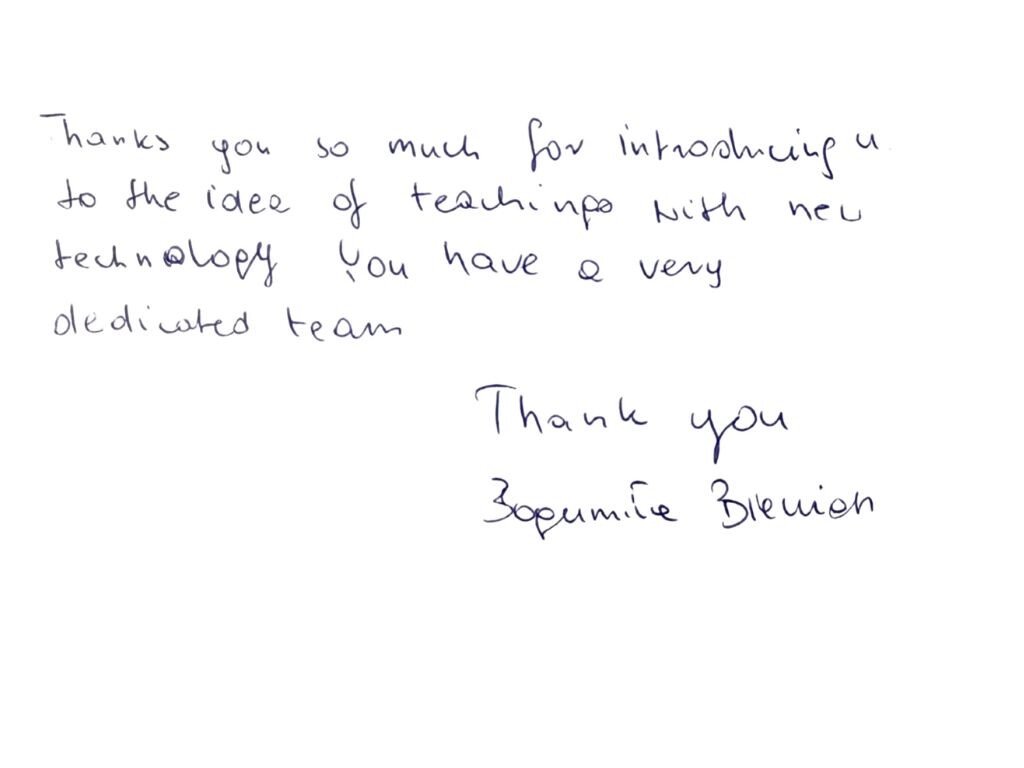 Thanks you so much for introducing u
to the idea of teachings with new
technology You have a very
dedicated team
Thank you